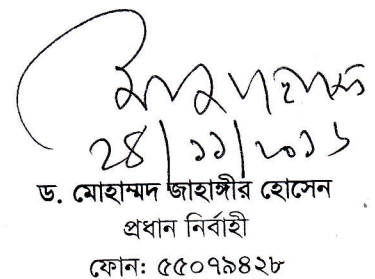 ২৪|১১|২০১৬
ড. মোহাম্মদ জাহাঙ্গীর হোসেন
প্রধান নির্বাহী
ফোন: ৫৫০৭৯৪২৮